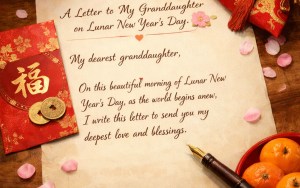 A Letter to My Granddaughter
on Lunar New Year's Day.
My dearest granddaughter,
On this beautiful morning of Lunar New
Year's Day, as the world begins anew,
I write this letter to send you my
deepest love and blessings.
福